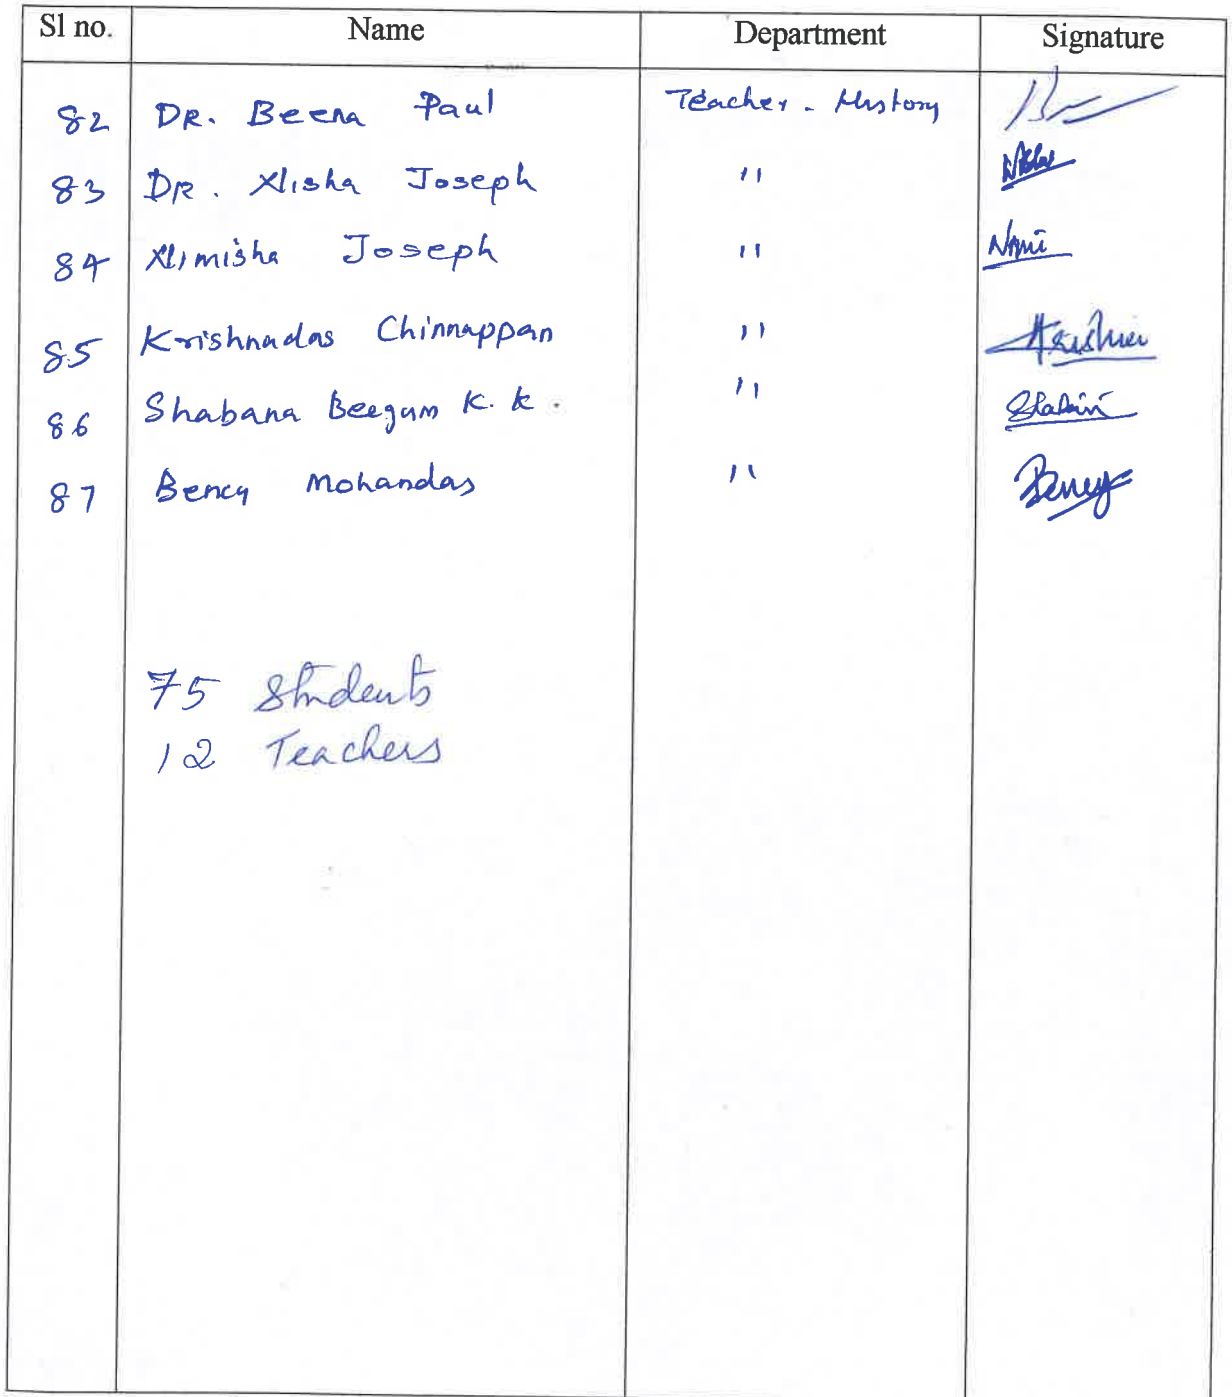 Sl no. Name Department Signature
82 DR. Beena Paul Teacher - History
83 DR. Nisha Joseph "
84 Nimisha Joseph " Nimi
85 Krishnadas Chinnappan " Krishna
86 Shabana Beegum K. K. "
87 Bency Mohandas " Bency
75 Students
12 Teachers